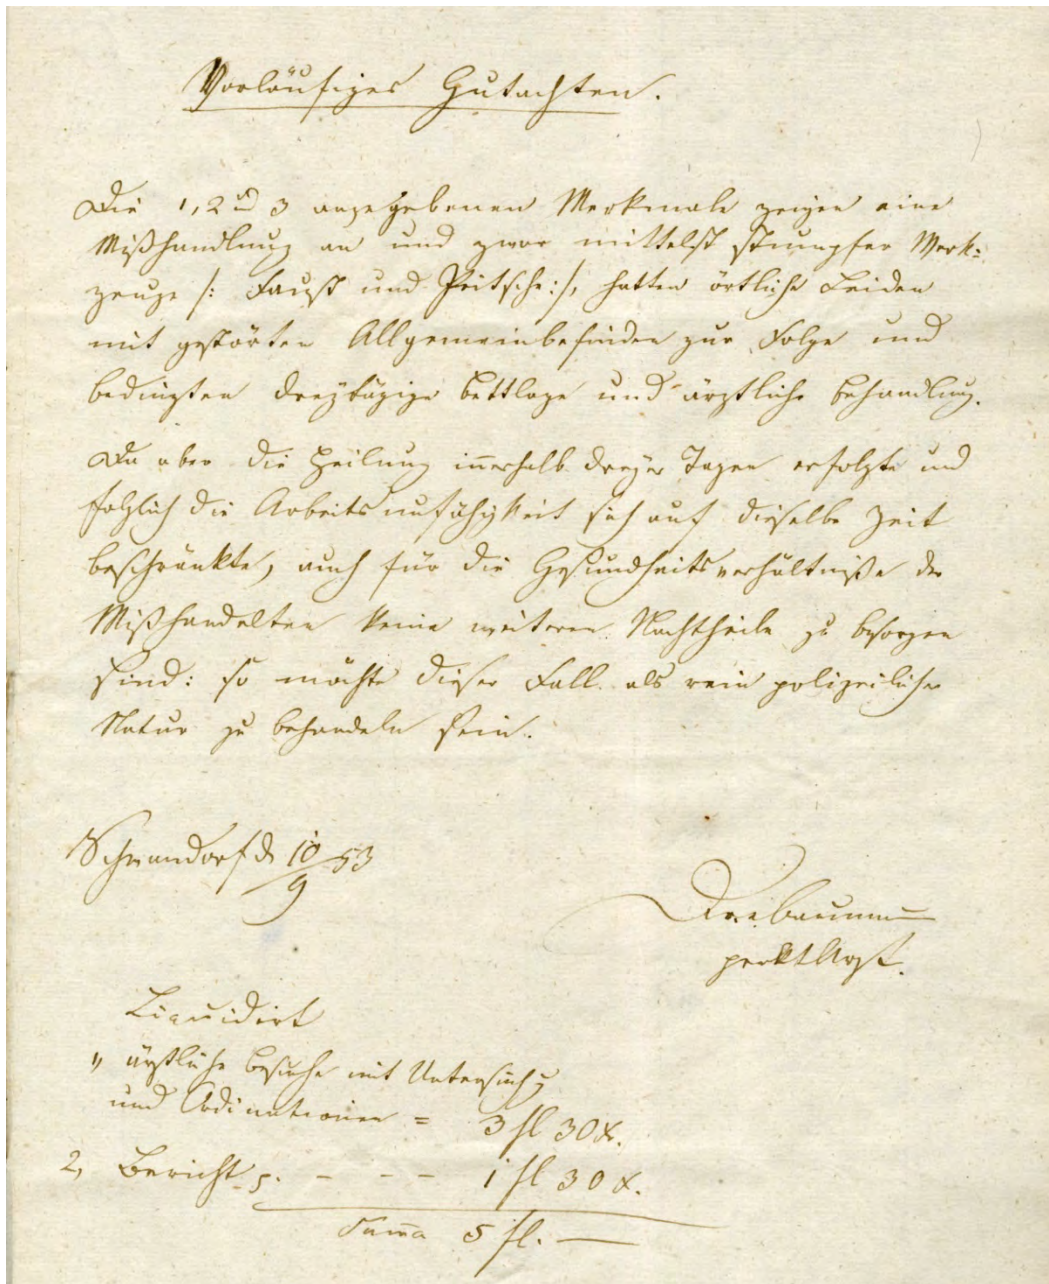 Vorläufiges Gutachten.
Die 1, 2 und 3 angegebenen Merkmale zeigen eine
Mißhandlung an und zwar mittelst stumpfer Werk-
zeuge /: Faust und Peitsche :/, hatten örtliche Leiden
mit gestörten Allgemeinbefinden zur Folge und
bedingten dreytägige Bettlage und ärztliche Behandlung.
Da aber die Heilung innerhalb dreyer Tagen erfolgte und
folglich die Arbeitsunfähigkeit sich auf dieselbe Zeit
beschränkte, auch für die Gesundheitsverhältniße der
Mißhandelten keine weiteren Nachtheile zu besorgen
sind: so möchte dieser Fall als rein polizeilicher
Natur zu behandeln sein.
Schwandorf d 10/9 53
prakt Arzt.
Liquidirt
1, ärztliche Besuche mit Untersuchg
und Ordinationen = 3 fl 30 x.
2, Bericht - - - 1 fl 30 x.
Suma 5 fl. —